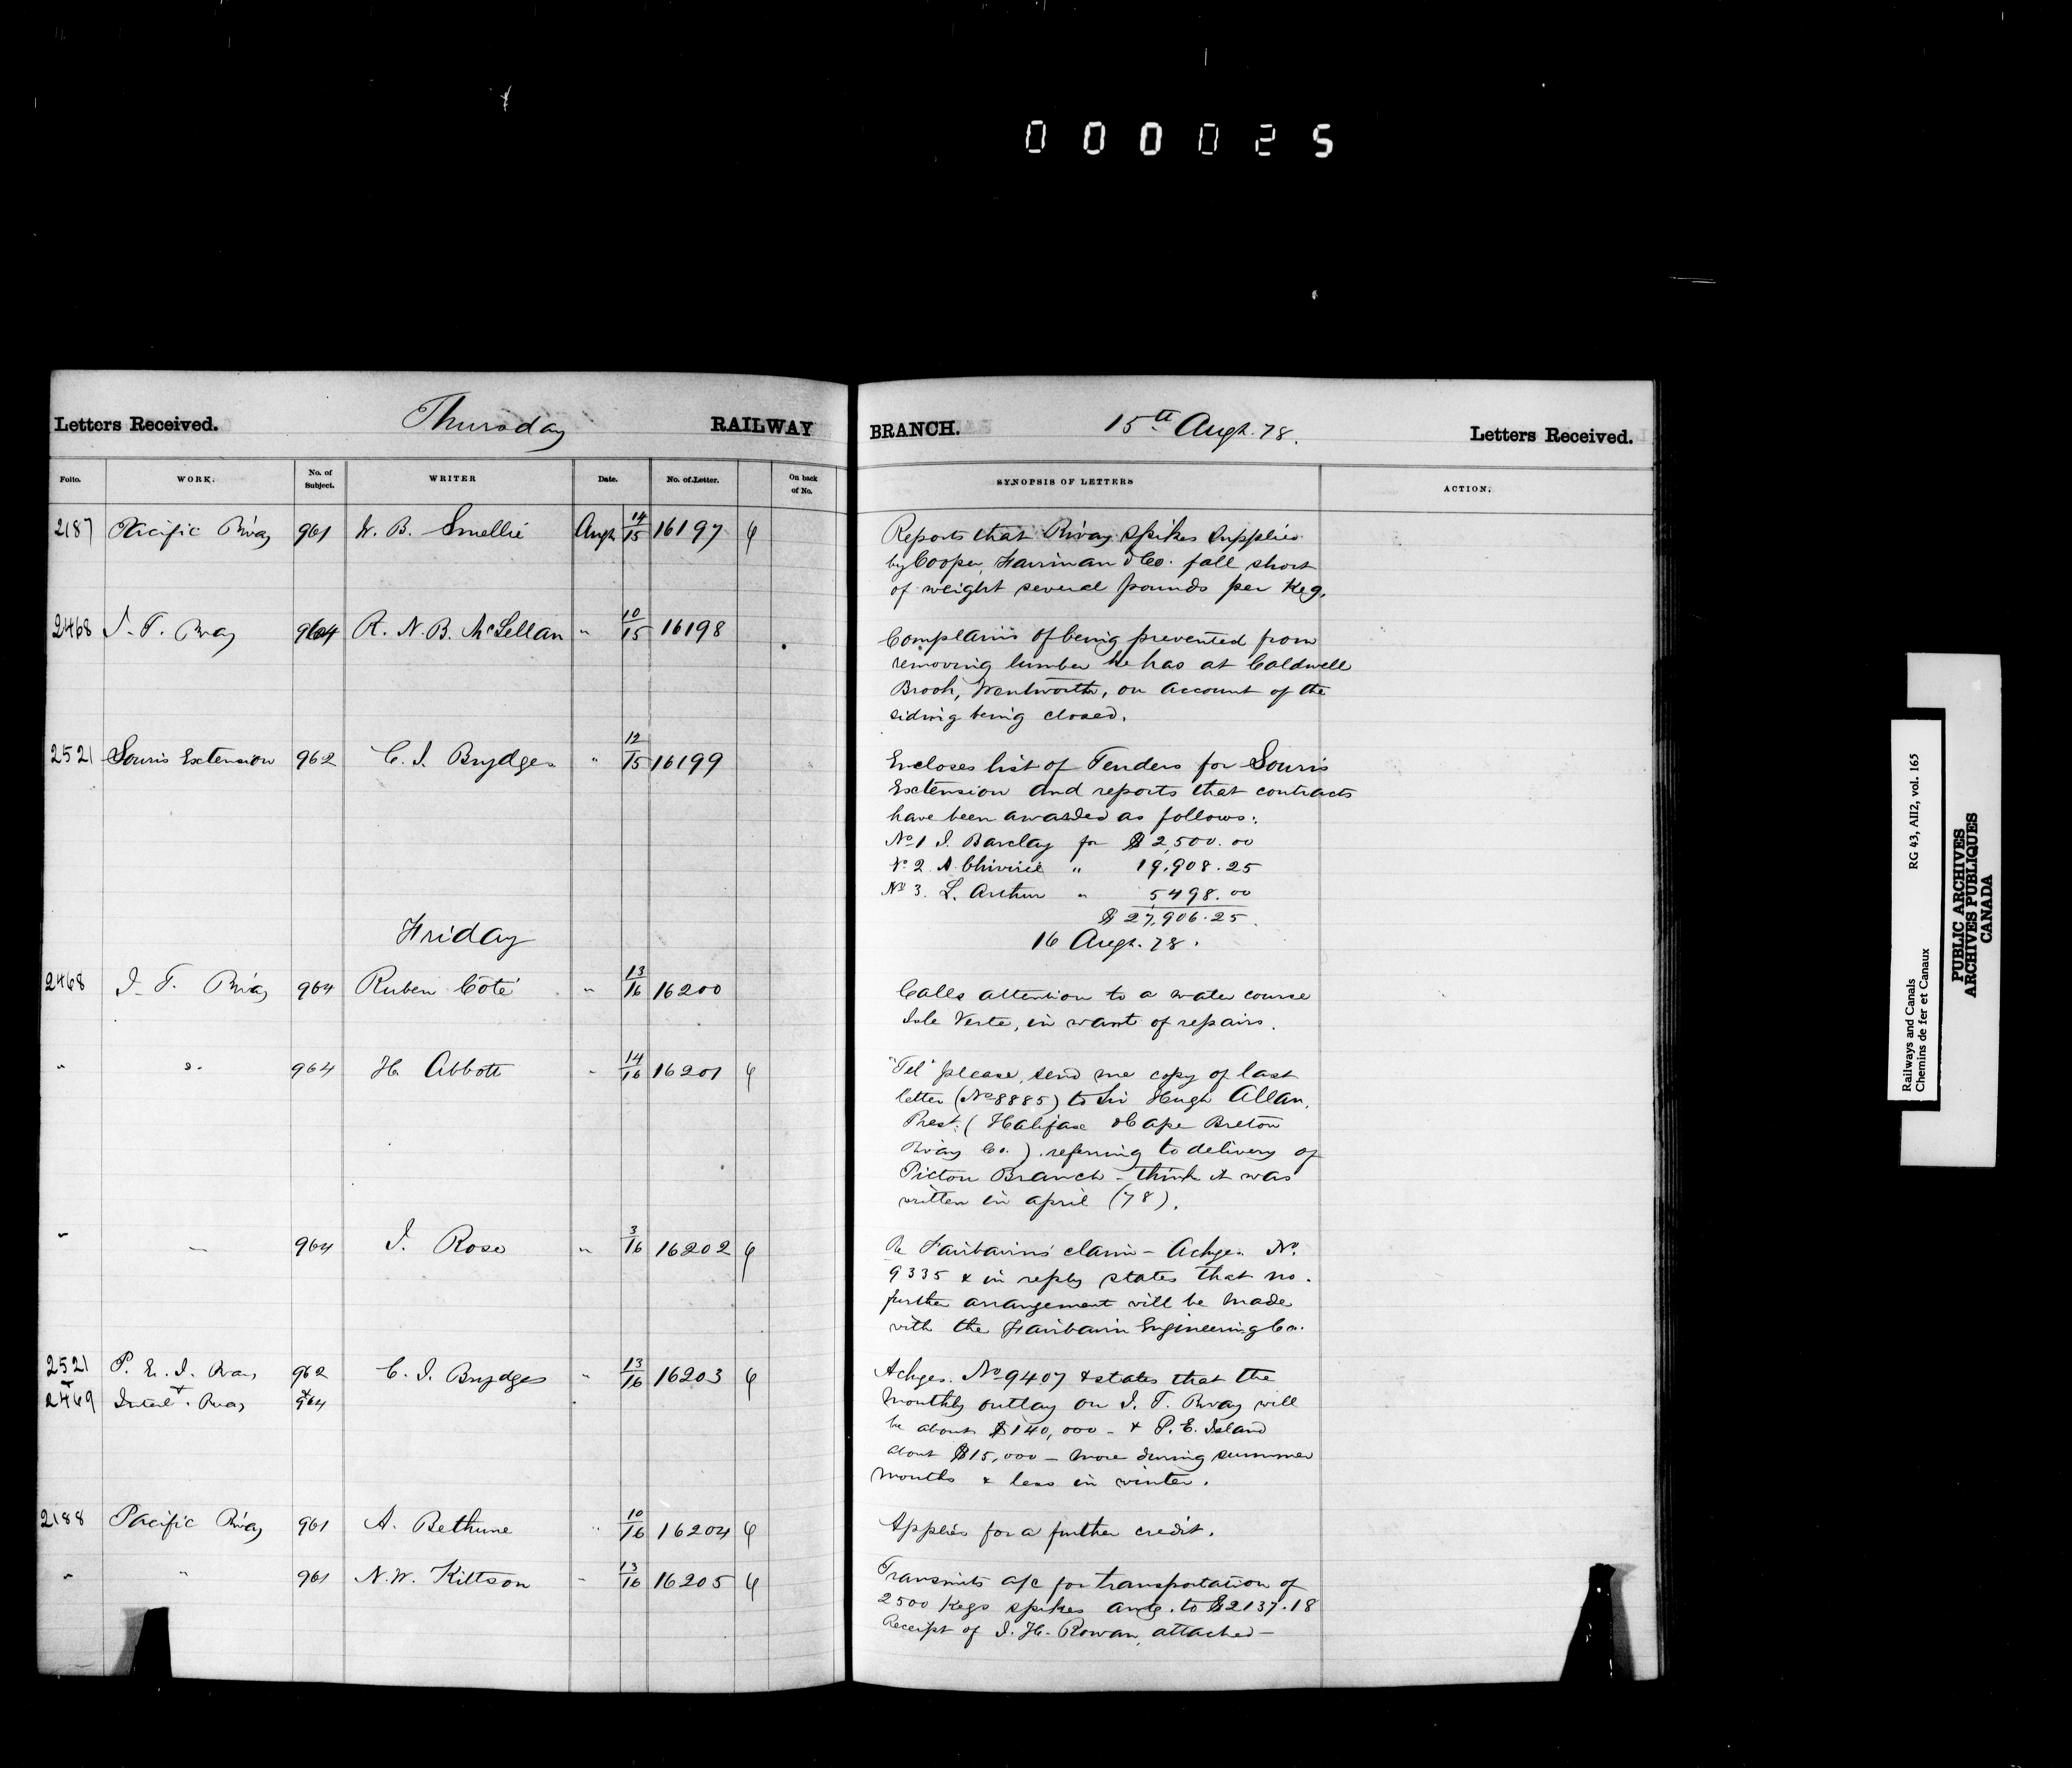 000025
Letters Received. Thursday RAILWAY BRANCH. 15th Augt. 78. Letters Received.
Folio. WORK. No. of Subject. WRITER Date. No. of Letter. On back of No. SYNOPSIS OF LETTERS ACTION.
2187 Pacific Rway 961 W. B. Smellie Augt 14/15 16197 Reports that Rway spikes supplied
by Cooper, Fairman & Co. fall short
of weight several pounds per Keg.
2468 I. T. Rway 964 R. N. B. McLellan " 10/15 16198 Complains of being prevented from
removing lumber he has at Caldwell
Brook, Wentworth, on account of the
siding being closed.
2521 Souris Extension 962 C. J. Brydges " 12/15 16199 Encloses list of Tenders for Souris
Extension and reports that contracts
have been awarded as follows:
No 1 J. Barclay for $2,500.00
No 2 A. Chivirie " 19,908.25
No 3. L. Arthur " 5,498.00
$27,906.25
Friday 16 Augt. 78.
2468 I. T. Rway 964 Ruben Coté " 13/16 16200 Calls attention to a water course
Isle Verte, in want of repairs.
" " 964 H. Abbott " 14/16 16201 "Tel" please send me copy of last
letter (No 8885) to Sir Hugh Allan,
Prest. (Halifax & Cape Breton
Rway Co.) referring to delivery of
Pictou Branch - think it was
written in april (78).
" " 964 J. Rose " 3/16 16202 Re Fairbairn's claim - Ackges. No.
9335 & in reply states that no
further arrangement will be made
with the Fairbairn Engineering Co.
2521 P. E. I. Rway 962 C. J. Brydges " 13/16 16203 Ackges. No 9407 & states that the
& 2469 & Intel. Rway & 964 monthly outlay on I. T. Rway will
be about $140,000 - & P. E. Island
about $15,000 - more during summer
months & less in winter.
2188 Pacific Rway 961 A. Bethune " 10/16 16204 Applies for a further credit.
" " 961 N. W. Kittson " 13/16 16205 Transmits a/c for transportation of
2500 Kegs spikes amtg. to $2137.18
Receipt of J. H. Rowan attached -
Railways and Canals RG 43, AII2, vol. 165
Chemins de fer et Canaux
PUBLIC ARCHIVES
ARCHIVES PUBLIQUES
CANADA